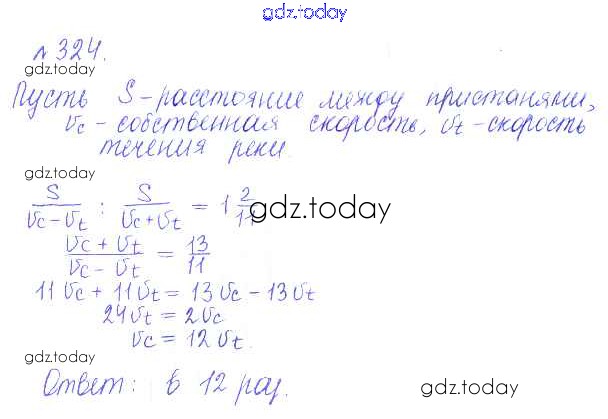 gdz.today
№ 324.
gdz.today
Пусть S - расстояние между пристанями,
Vc - собственная скорость, Vt - скорость
течения реки.
gdz.today
S/(Vc - Vt) : S/(Vc + Vt) = 1 2/11 gdz.today
(Vc + Vt)/(Vc - Vt) = 13/11
11Vc + 11Vt = 13Vc - 13Vt
24Vt = 2Vc
Vc = 12Vt.
gdz.today
Ответ: в 12 раз.
gdz.today